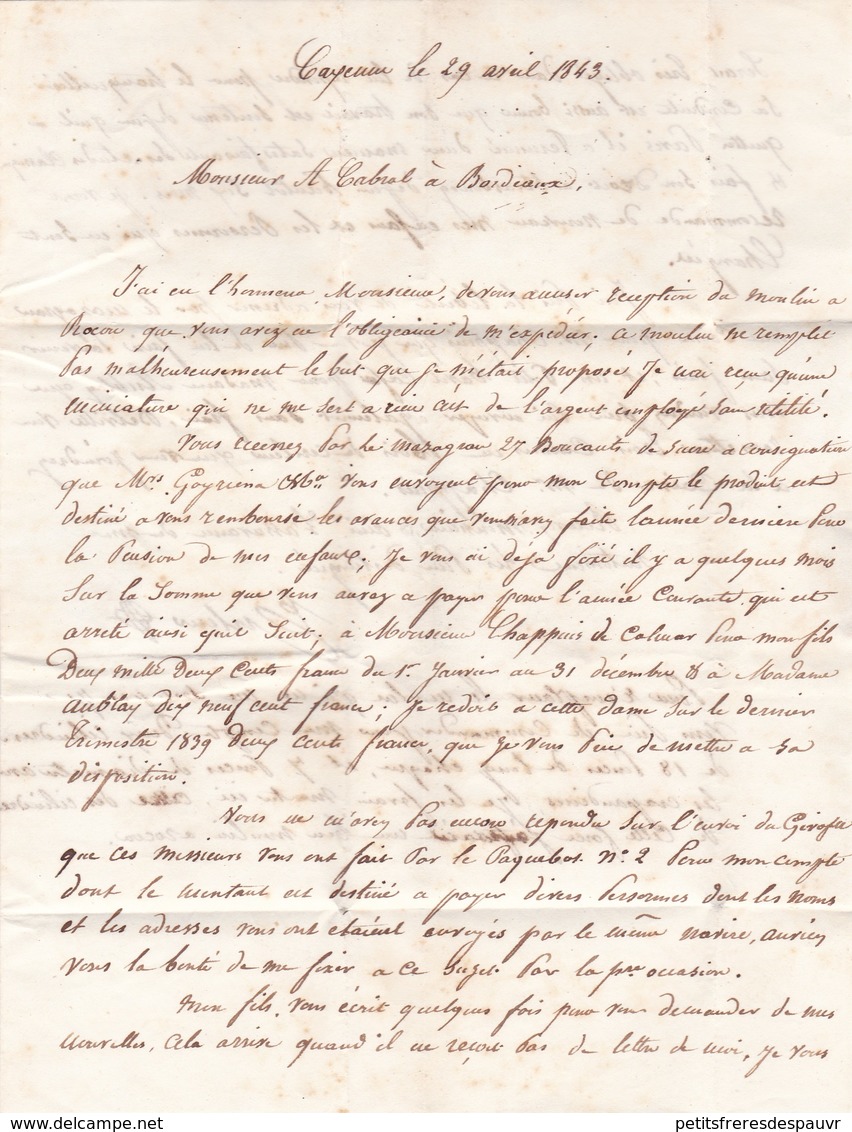 Cayenne le 29 avril 1843.
Monsieur A Cabrol à Bordeaux,
J'ai eu l'honneur, Monsieur, de vous accuser reception du moulin a
Rocou que vous avez eu l'obligeance de m'expédier; ce moulin ne remplit
pas malheureusement le but que je m'était proposé Je n'ai reçu qu'une
miniature qui ne me sert a rien c'est de l'argent employé sans utilité.
Vous recevrez par le mazagran 27 Boucauts de sucre a consignation
que Mrs Goyriena & Co vous envoyent pour mon Compte le produit est
destiné a vous remboursé les avances que vous avez faite l'année derniere pour
la Pension de mes enfants; Je vous ai déja fixé il y a quelques mois
sur la somme que vous aurez a payer pour l'année Courante qui est
arreté ainsi qu'il suit; à Monsieur Chappuis de Colmar pour mon fils
Deux mille Deux cents francs du 1r. Janvier au 31 décembre & à Madame
aublay dix neuf cent francs; Je redoit a cette dame sur le dernier
trimestre 1839 deux cents francs, que Je vous prie de mettre a sa
disposition.
Vous ne m'avez pas encore repondu sur l'envoi du Girofle
que ces messieurs vous ont fait par le Paquebos No. 2 pour mon compte
dont le montant est destiné a payer divers personnes dont les noms
et les adresses vous ont étaient envoyés par le même navire, auriez
vous la bonté de me fixer a ce sujet par la pre occasion.
Mon fils vous écrit quelques fois pour vous demander de mes
nouvelles, cela arrive quand il ne reçoit pas de lettre de moi, Je vous
petitsfreresdespauvr